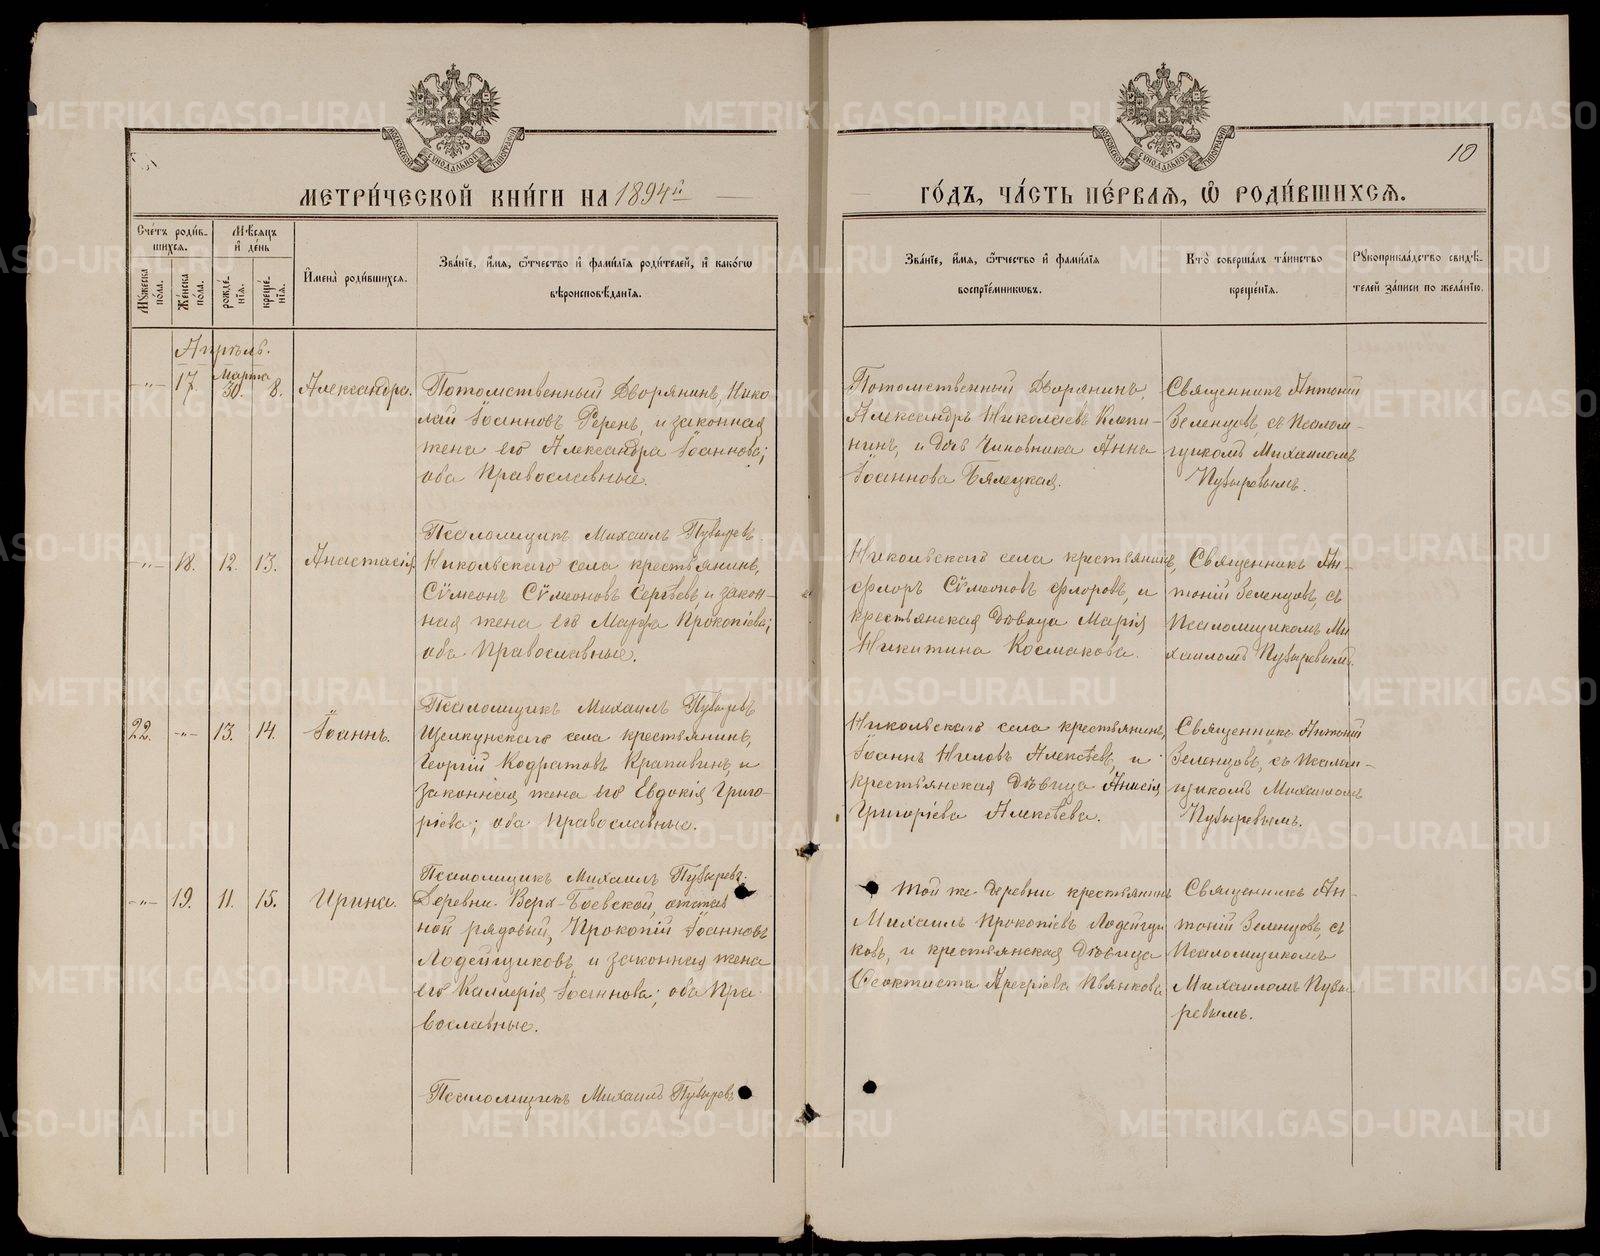 МЕТРИ́ЧЕСКОЙ КНИ́ГИ НА 1894й
ГО́ДЪ, ЧА́СТЬ ПЕ́РВАЯ, Ѽ РОДИ́ВШИХСЯ.
10
Сче́тъ роди́в-
шихся.
Мѣ́сяцъ
и҆ де́нь
Мꙋ́жеска по́ла.
Же́нска по́ла.
рожде́-
нїѧ.
креще́-
нїѧ.
И҆мена̀ роди́вшихся.
Зва́нїе, и҆́мѧ, ѻ҆́тчество и҆ фами́лїѧ роди́телей, и҆ како́гѡ
вѣроисповѣ́данїѧ.
Зва́нїе, и҆́мѧ, ѻ҆́тчество и҆ фами́лїѧ
воспрїе́мниковъ.
Кто̀ соверша́лъ та́инство
креще́нїѧ.
Рꙋкоприкла́дство свидѣ́-
телей за́писи по жела́нїю.
Апрѣль.
-"- 17. Марта 30. 8. Александра.
Потомственный Дворянинъ, Нико
лай Іоанновъ Реренъ, и законная
жена его Александра Іоаннова;
оба Православные.
Потомственный Дворянинъ,
Александръ Николаевъ Клепи-
нинъ, и дочь Чиновника Анна
Іоаннова Бялецкая.
Священникъ Антоній
Зеленцовъ, съ Псалом-
щикомъ Михаиломъ
Пузыревымъ.
Псаломщикъ Михаилъ Пузыревъ
-"- 18. 12. 13. Анастасія.
Никольскаго села крестьянинъ,
Сѵмеонъ Сѵмеоновъ Сергѣевъ, и закон-
ная жена его Марфа Прокопіева;
оба Православные.
Никольскаго села крестьянинъ,
Флоръ Сѵмеоновъ Флоровъ, и
крестьянская дѣвица Марія
Никитина Космакова.
Священникъ Ан-
тоній Зеленцовъ, съ
Псаломщикомъ Ми
хаиломъ Пузыревымъ.
Псаломщикъ Михаилъ Пузыревъ
22. -"- 13. 14. Іоаннъ.
Щелкунскаго села крестьянинъ,
Георгій Кодратовъ Крапивинъ, и
законная жена его Евдокія Григо-
ріева; оба Православные.
Никольскаго села крестьянинъ,
Іоаннъ Ниловъ Алексѣевъ, и
крестьянская дѣвица Анисія
Григоріева Алексѣева.
Священникъ Антоній
Зеленцовъ, съ Псалом-
щикомъ Михаиломъ
Пузыревымъ.
Псаломщикъ Михаилъ Пузыревъ.
-"- 19. 11. 15. Ирина.
Деревни Верх-Боевской, отстав
ной рядовый, Прокопій Іоанновъ
Лодейщиковъ, и законная жена
его Каллерія Іоаннова; оба Пра-
вославные.
Той же деревни крестьянинъ
Михаилъ Прокопіевъ Лодейщи
ковъ, и крестьянская дѣвица
Ѳеоктиста Арефіева Пьянкова
Священникъ Ан-
тоній Зеленцовъ, съ
Псаломщикомъ
Михаиломъ Пузы
ревымъ.
Псаломщикъ Михаилъ Пузыревъ
METRIKI.GASO-URAL.RU